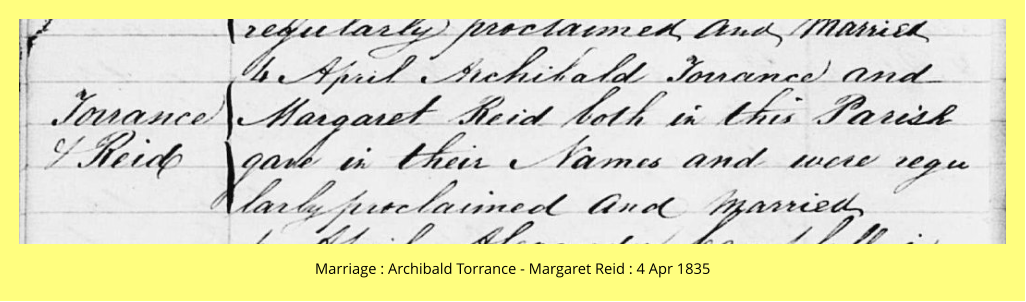 regularly proclaimed and Married
4 April Archibald Torrance and
Torrance Margaret Reid both in this Parish
& Reid gave in their Names and were regu
larly proclaimed and Married
April
Marriage : Archibald Torrance - Margaret Reid : 4 Apr 1835